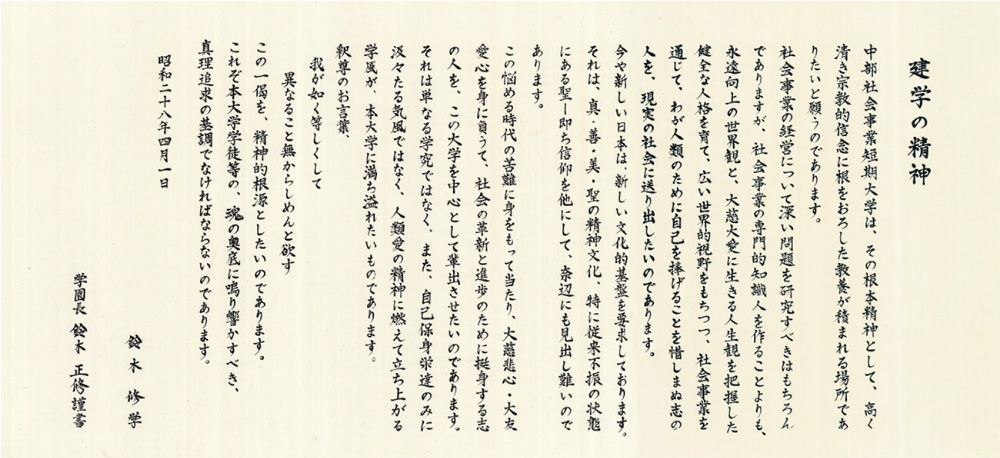 建学の精神
中部社会事業短期大学は、その根本精神として、高く
清き宗教的信念に根をおろした教養が積まれる場所であ
りたいと願うのであります。
社会事業の経営について深い問題を研究すべきはもちろん
でありますが、社会事業の専門的知識人を作ることよりも、
永遠向上の世界観と、大慈大愛に生きる人生観を把握した
健全な人格を育て、広い世界的視野をもちつつ、社会事業を
通じて、わが人類のために自己を捧げることを惜しまぬ志の
人を、現実の社会に送り出したいのであります。
今や新しい日本は、新しい文化的基盤を要求しております。
それは、真・善・美・聖の精神文化、特に従来不振の状態
にある聖―即ち信仰を他にして、奈辺にも見出し難いので
あります。
この悩める時代の苦難に身をもって当たり、大慈悲心・大友
愛心を身に負うて、社会の革新と進歩のために挺身する志
の人を、この大学を中心として輩出させたいのであります。
それは単なる学究ではなく、また、自己保身栄達のみに
汲々たる気風ではなく、人類愛の精神に燃えて立ち上がる
学風が、本大学に満ち溢れたいものであります。
釈尊のお言葉、
我が如く等しくして
異なること無からしめんと欲す
この一偈を、精神的根源としたいのであります。
これぞ本大学学徒等の、魂の奥底に鳴り響かすべき、
真理追求の基調でなければならないのであります。
昭和二十八年四月一日
鈴木修学
学園長 鈴木正修謹書